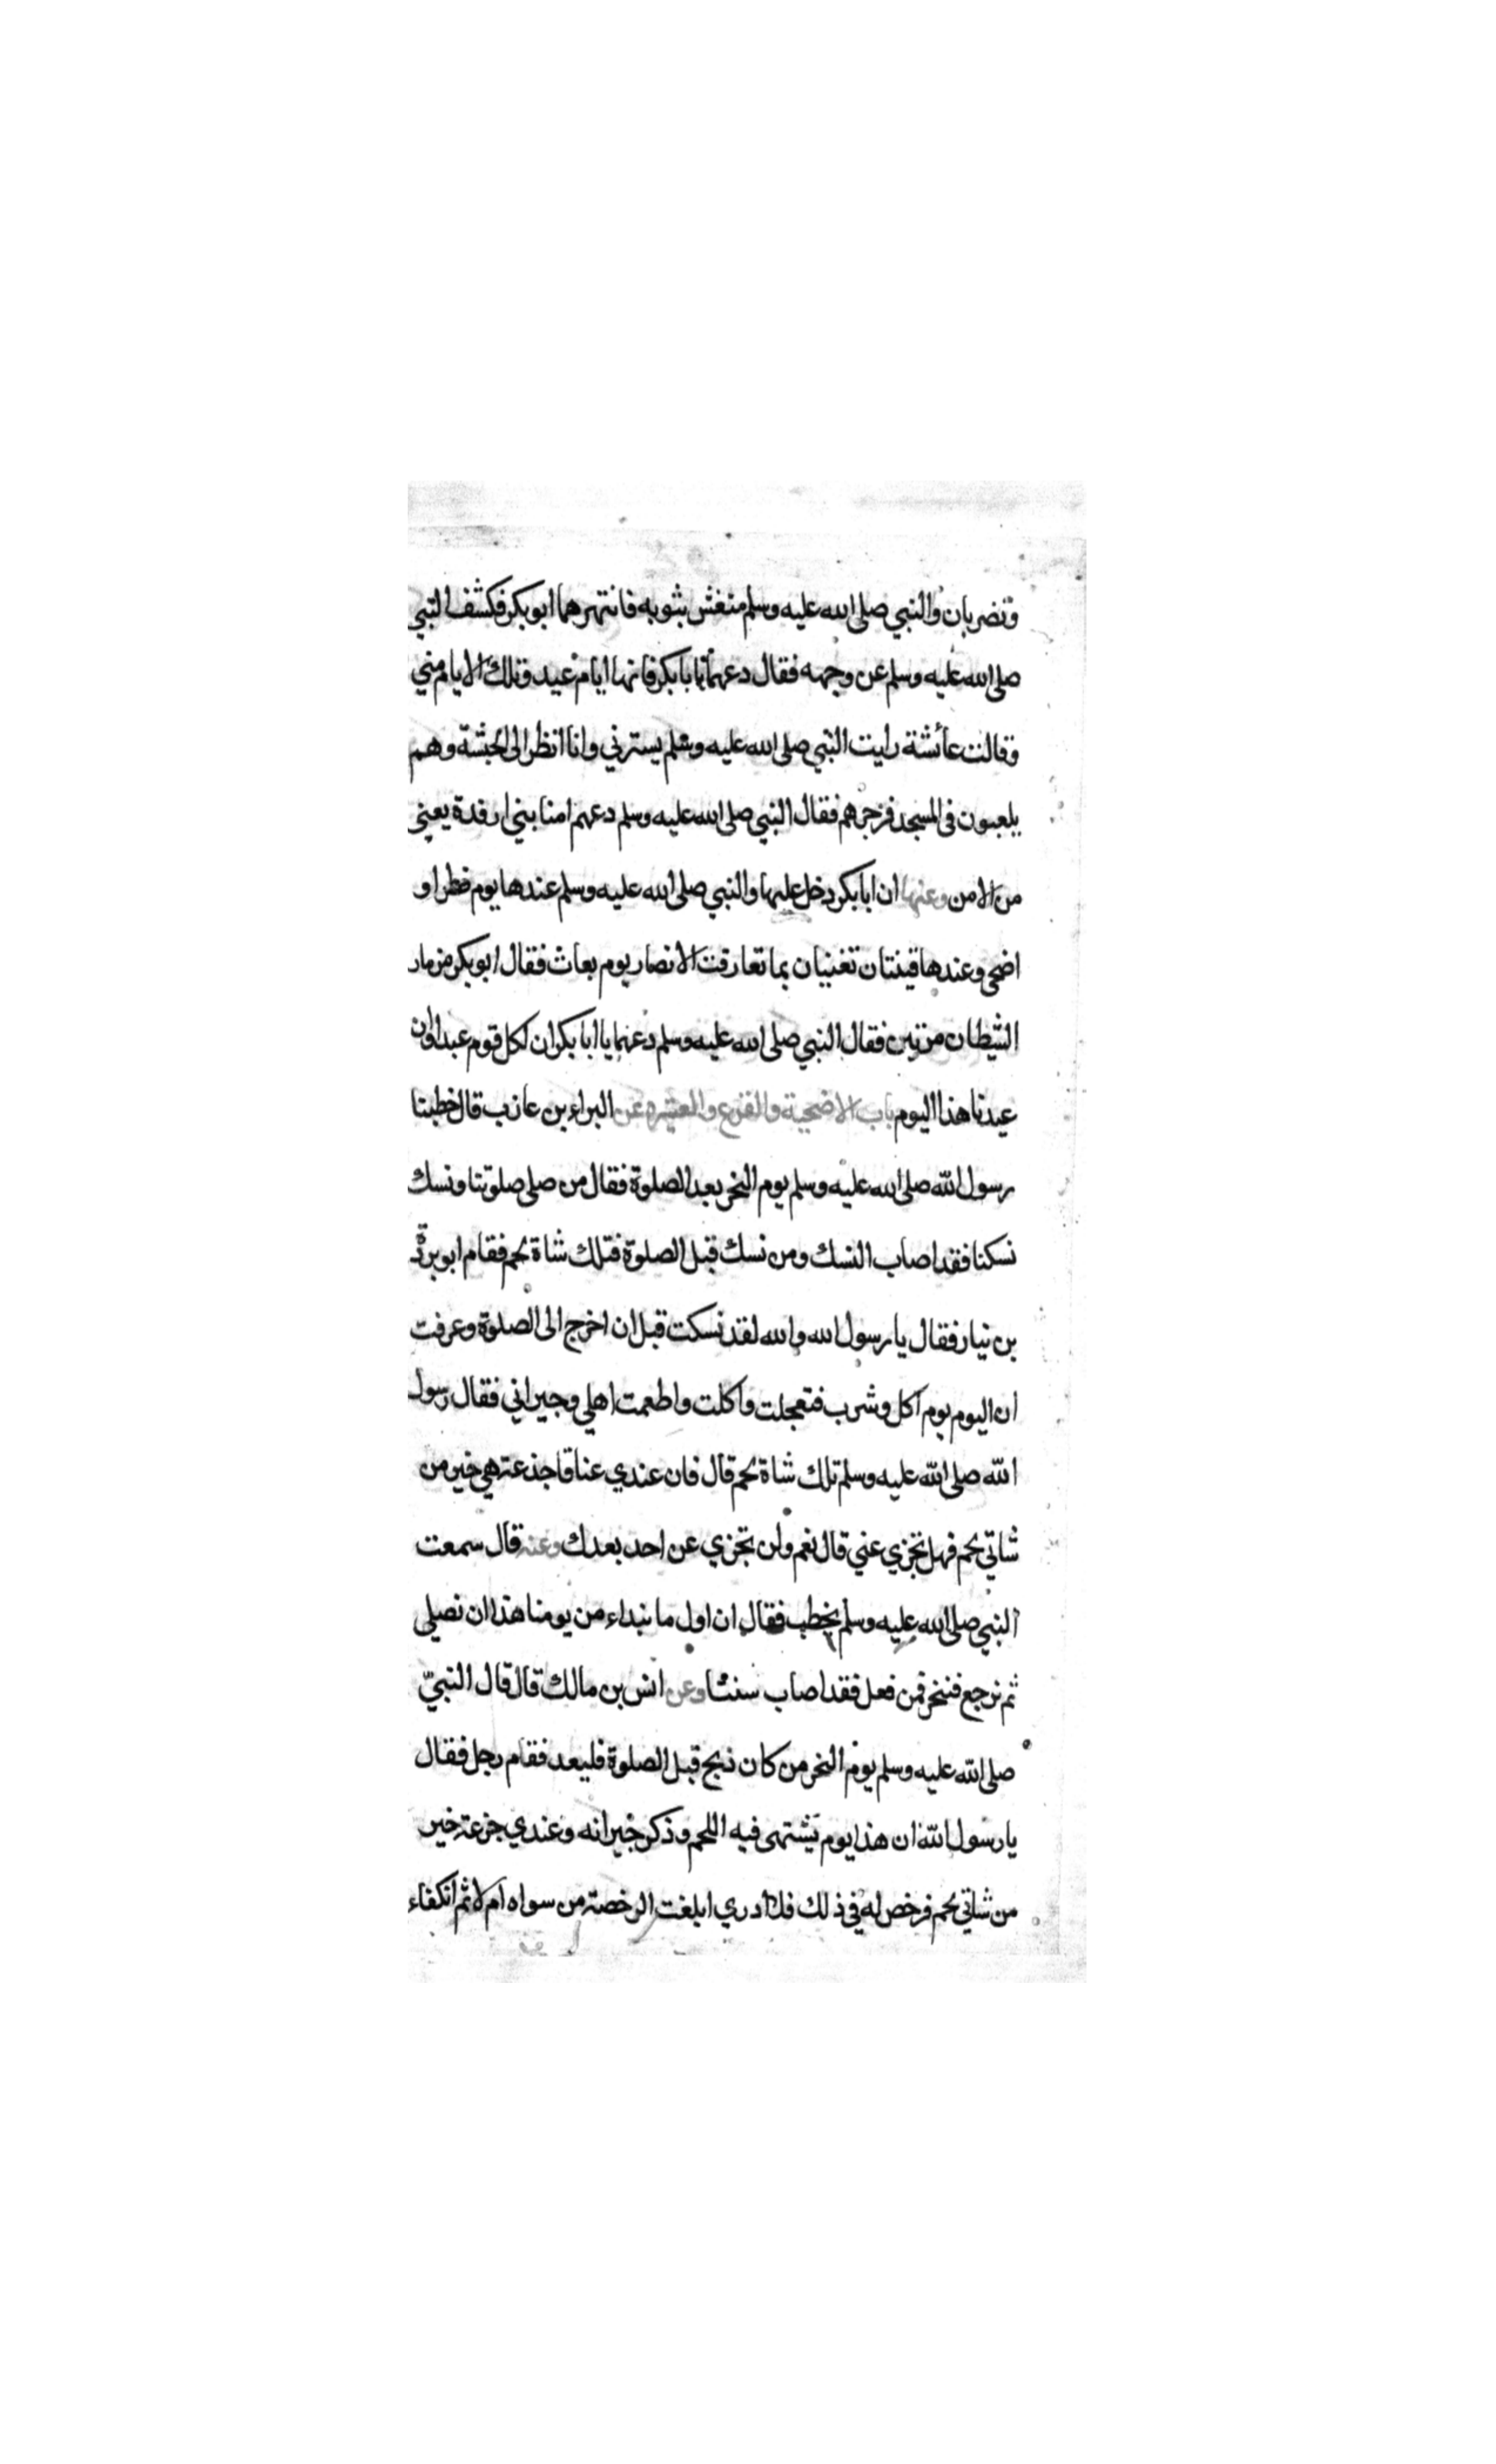 وتضربان والنبي صلى الله عليه وسلم متغش بثوبه فانتهرهما ابو بكر فكشف النبي
صلى الله عليه وسلم عن وجهه فقال دعهما يا با بكر فانها ايام عيد وتلك الايام مني
وقالت عائشة رايت النبي صلى الله عليه وسلم يسترني وانا انظر الى الحبشة وهم
يلعبون في المسجد فزجرهم فقال النبي صلى الله عليه وسلم دعهم امنا بني ارفدة يعني
من الامن وعنها ان ابا بكر دخل عليها والنبي صلى الله عليه وسلم عندها يوم فطر او
اضحى وعندها قينتان تغنيان بما تعارفت الانصار يوم بعاث فقال ابو بكر مزمار
الشيطان مرتين فقال النبي صلى الله عليه وسلم دعهما يا ابا بكر ان لكل قوم عيدا وان
عيدنا هذا اليوم باب الاضحية والفرع والعتيره عن البراء بن عازب قال خطبنا
رسول الله صلى الله عليه وسلم يوم النحر بعد الصلوة فقال من صلى صلوتنا ونسك
نسكنا فقد اصاب النسك ومن نسك قبل الصلوة فتلك شاة لحم فقام ابو بردة
بن نيار فقال يا رسول الله والله لقد نسكت قبل ان اخرج الى الصلوة وعرفت
ان اليوم يوم اكل وشرب فتعجلت واكلت واطعمت اهلي وجيراني فقال رسول
الله صلى الله عليه وسلم تلك شاة لحم قال فان عندي عناقا جذعة هي خير من
شاتي لحم فهل تجزي عني قال نعم ولن تجزي عن احد بعدك وعنه قال سمعت
النبي صلى الله عليه وسلم يخطب فقال ان اول ما نبداء من يومنا هذا ان نصلي
ثم نرجع فننحر فمن فعل فقد اصاب سنتنا وعن انس بن مالك قال قال النبيّ
صلى الله عليه وسلم يوم النحر من كان ذبح قبل الصلوة فليعد فقام رجل فقال
يا رسول الله ان هذا يوم يشتهى فيه اللحم وذكر جيرانه وعندي جزعة خير
من شاتي لحم فرخص له في ذلك فلا ادري ابلغت الرخصة من سواه ام لا ثم انكفاء